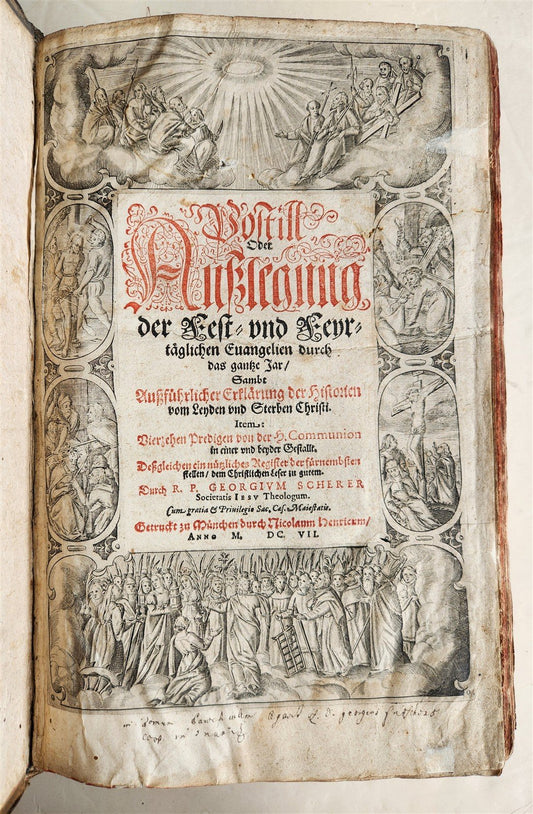 Postill
Oder
Außlegung
der Fest- vnd Feyr-
täglichen Euangelien durch
das gantze Jar/
Sambt
Außführlicher Erklärung der Historien
vom Leyden vnd Sterben Christi.
Item:
Vierzehen Predigen von der H. Communion
in einer vnd beyder Gestallt.
Deßgleichen ein nützliches Register der fürnembsten
stellen/ dem Christlichen Leser zu gutem.
Durch R. P. GEORGIVM SCHERER
Societatis IESV Theologum.
Cum gratia & Priuilegio Sac. Cæs. Maiestatis.
Getruckt zu München durch Nicolaum Henricum/
ANNO M. DC VII.